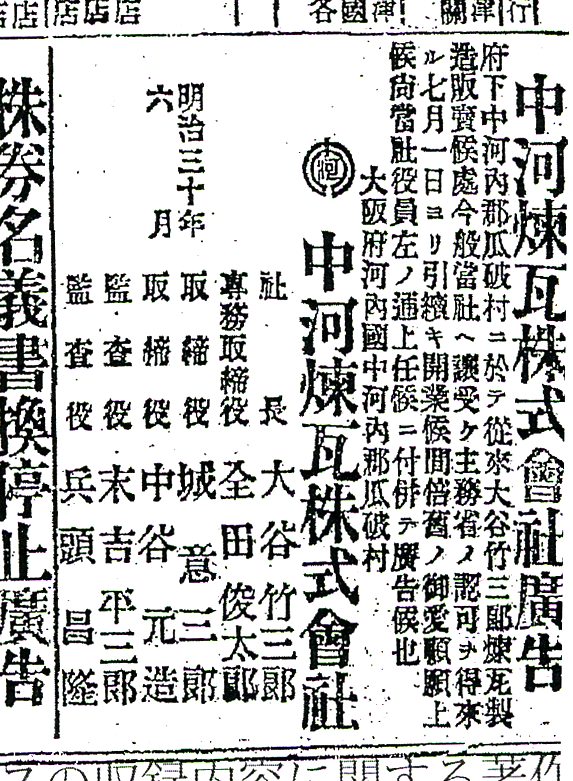 各國
關津行
店店店店
中河煉瓦株式會社廣告
府下中河內郡瓜破村ニ於テ從來大谷竹三郞煉瓦製
造販賣候處今般當社ヘ讓受ケ主務省ノ認可ヲ得來
ル七月一日ヨリ引續キ開業候間倍舊ノ御愛顧願上
候尙當社役員左ノ通上任候ニ付併テ廣告候也
大阪府河內國中河內郡瓜破村
中河
中河煉瓦株式會社
社長 大谷竹三郞
專務取締役 全田俊太郞
取締役 城意三郞
取締役 中谷元造
監査役 末吉平三郞
監査役 兵頭昌隆
明治三十年
六月
株券名義書換停止廣告
スの収録内容に関する著作